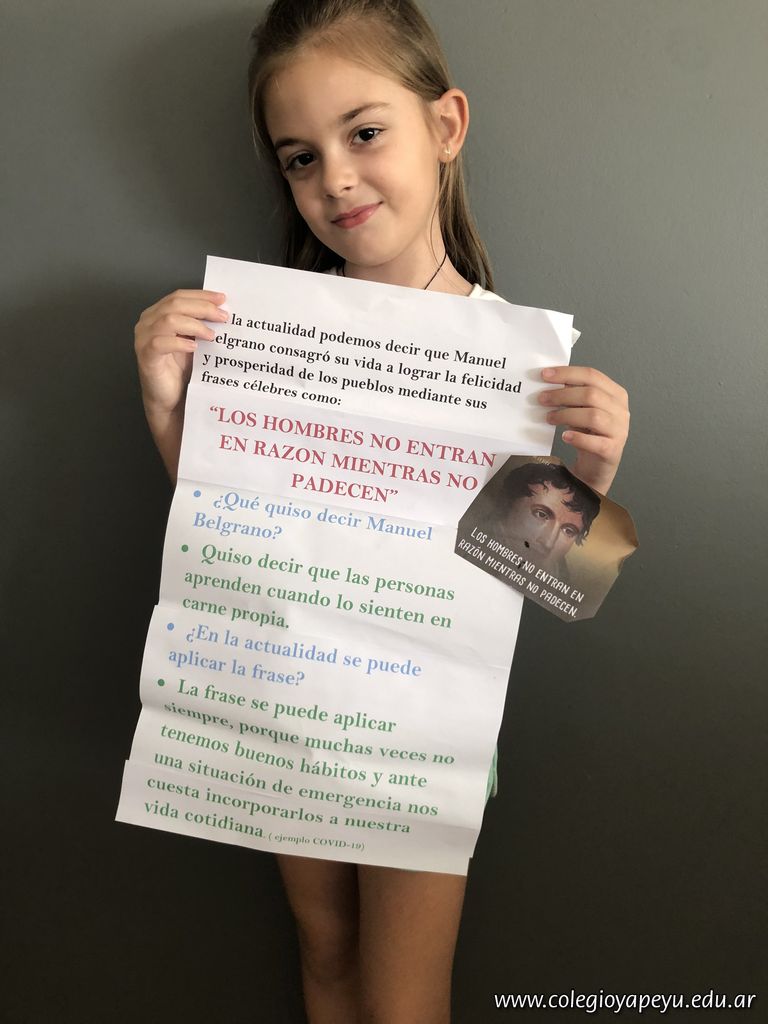 la actualidad podemos decir que Manuel
Belgrano consagró su vida a lograr la felicidad
y prosperidad de los pueblos mediante sus
frases célebres como:
“LOS HOMBRES NO ENTRAN
EN RAZON MIENTRAS NO
PADECEN”
• ¿Qué quiso decir Manuel
Belgrano?
• Quiso decir que las personas
aprenden cuando lo sienten en
carne propia.
• ¿En la actualidad se puede
aplicar la frase?
• La frase se puede aplicar
siempre, porque muchas veces no
tenemos buenos hábitos y ante
una situación de emergencia nos
cuesta incorporarlos a nuestra
vida cotidiana. ( ejemplo COVID-19)
LOS HOMBRES NO ENTRAN EN
RAZÓN MIENTRAS NO PADECEN.
www.colegioyapeyu.edu.ar